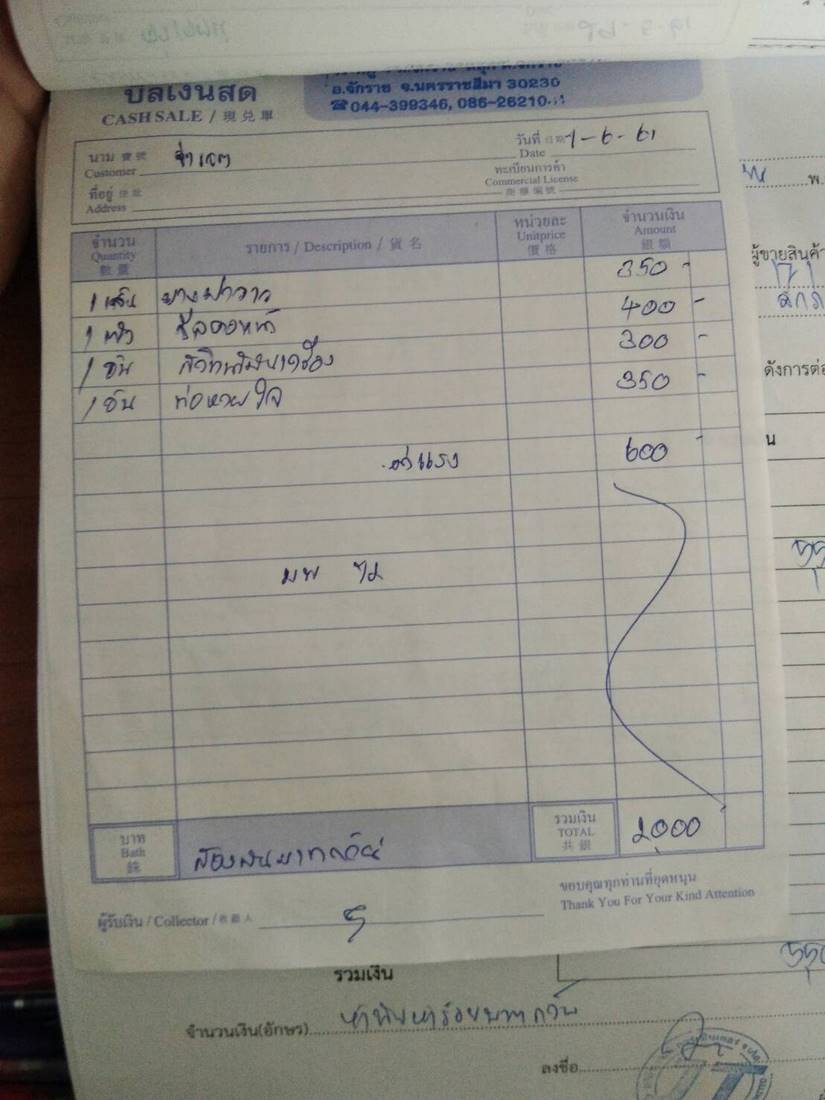 บิลเงินสด
CASH SALE / 現兌單
อ.จักราช จ.นครราชสีมา 30230
☎044-399346, 086-26210
นาม 寶號
Customer
จ่าเจต
วันที่ 日期
Date
1-6-61
ที่อยู่ 住址
Address
ทะเบียนการค้า
Commercial License
商業編號
จำนวน
Quantity
數量
รายการ / Description / 貨名
หน่วยละ
Unitprice
價格
จำนวนเงิน
Amount
銀額
1 เส้น ยางฝาวาว 350 -
1 ตัว ซีลคอหน้า 400 -
1 อัน สวิทน้ำมันเครื่อง 300 -
1 อัน ท่อหายใจ 350 -
ค่าแรง 600 -
บาท
Bath
銖
สองพันบาทถ้วน
รวมเงิน
TOTAL
共銀
2,000
ขอบคุณทุกท่านที่อุดหนุน
Thank You For Your Kind Attention
ผู้รับเงิน / Collector / 收銀人
พ.
ผู้ขายสินค้า
ดังการต่อ
น
รวมเงิน
จำนวนเงิน(อักษร) ห้าพันห้าร้อยบาทถ้วน
ลงชื่อ